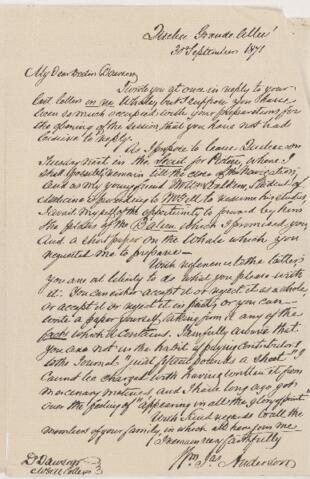 Quebec Grande Allée
30 September 1871
My Dear Doctor Dawson
I wrote you at once in reply to your
last letter on the Whales but I suppose you have
been so much occupied with your preparations for
the opening of the session that you have not had
to reply.
As I propose to leave Quebec on
Tuesday next in the for where I
shall possibly remain till the close of the Navigation,
and as my young friend Student of
Medicine is proceeding to McGill to resume his studies
I avail myself of the opportunity to forward by him
the plates of the Baleen which I promised you
And a short paper on the Whale which you
requested me to prepare —
With reference to the latter
you are at liberty to do what you please with
it. You can either accept it or reject it as a whole
or accept it or reject it in part, or you can
write a paper yourself taking from it any of the
facts which it contains. I am fully aware that
you are not in the habit of paying contributors
to the Journal "just fifteen pounds a sheet" I
cannot be charged with having written it from
mercenary motives, and I have long ago got
over the feeling of "appearing in all the glory of print"
With kind regards to all the
members of your family, in which all here join me
I remain very faithfully
Wm Jas Anderson
Dr Dawson
McGill College